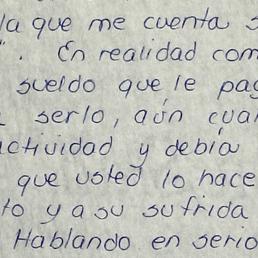 la que me cuenta s
". En realidad com
sueldo que le pag
serlo, aún cua
actividad y debía
que usted lo hace
to y a su sufrida
Hablando en serio